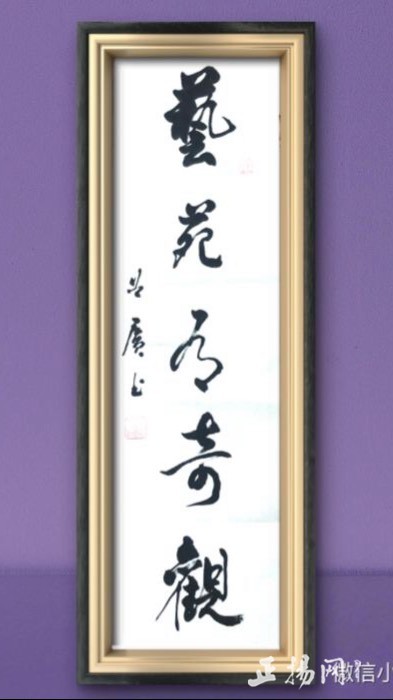 藝苑有奇觀
廣
正揚网
微信小